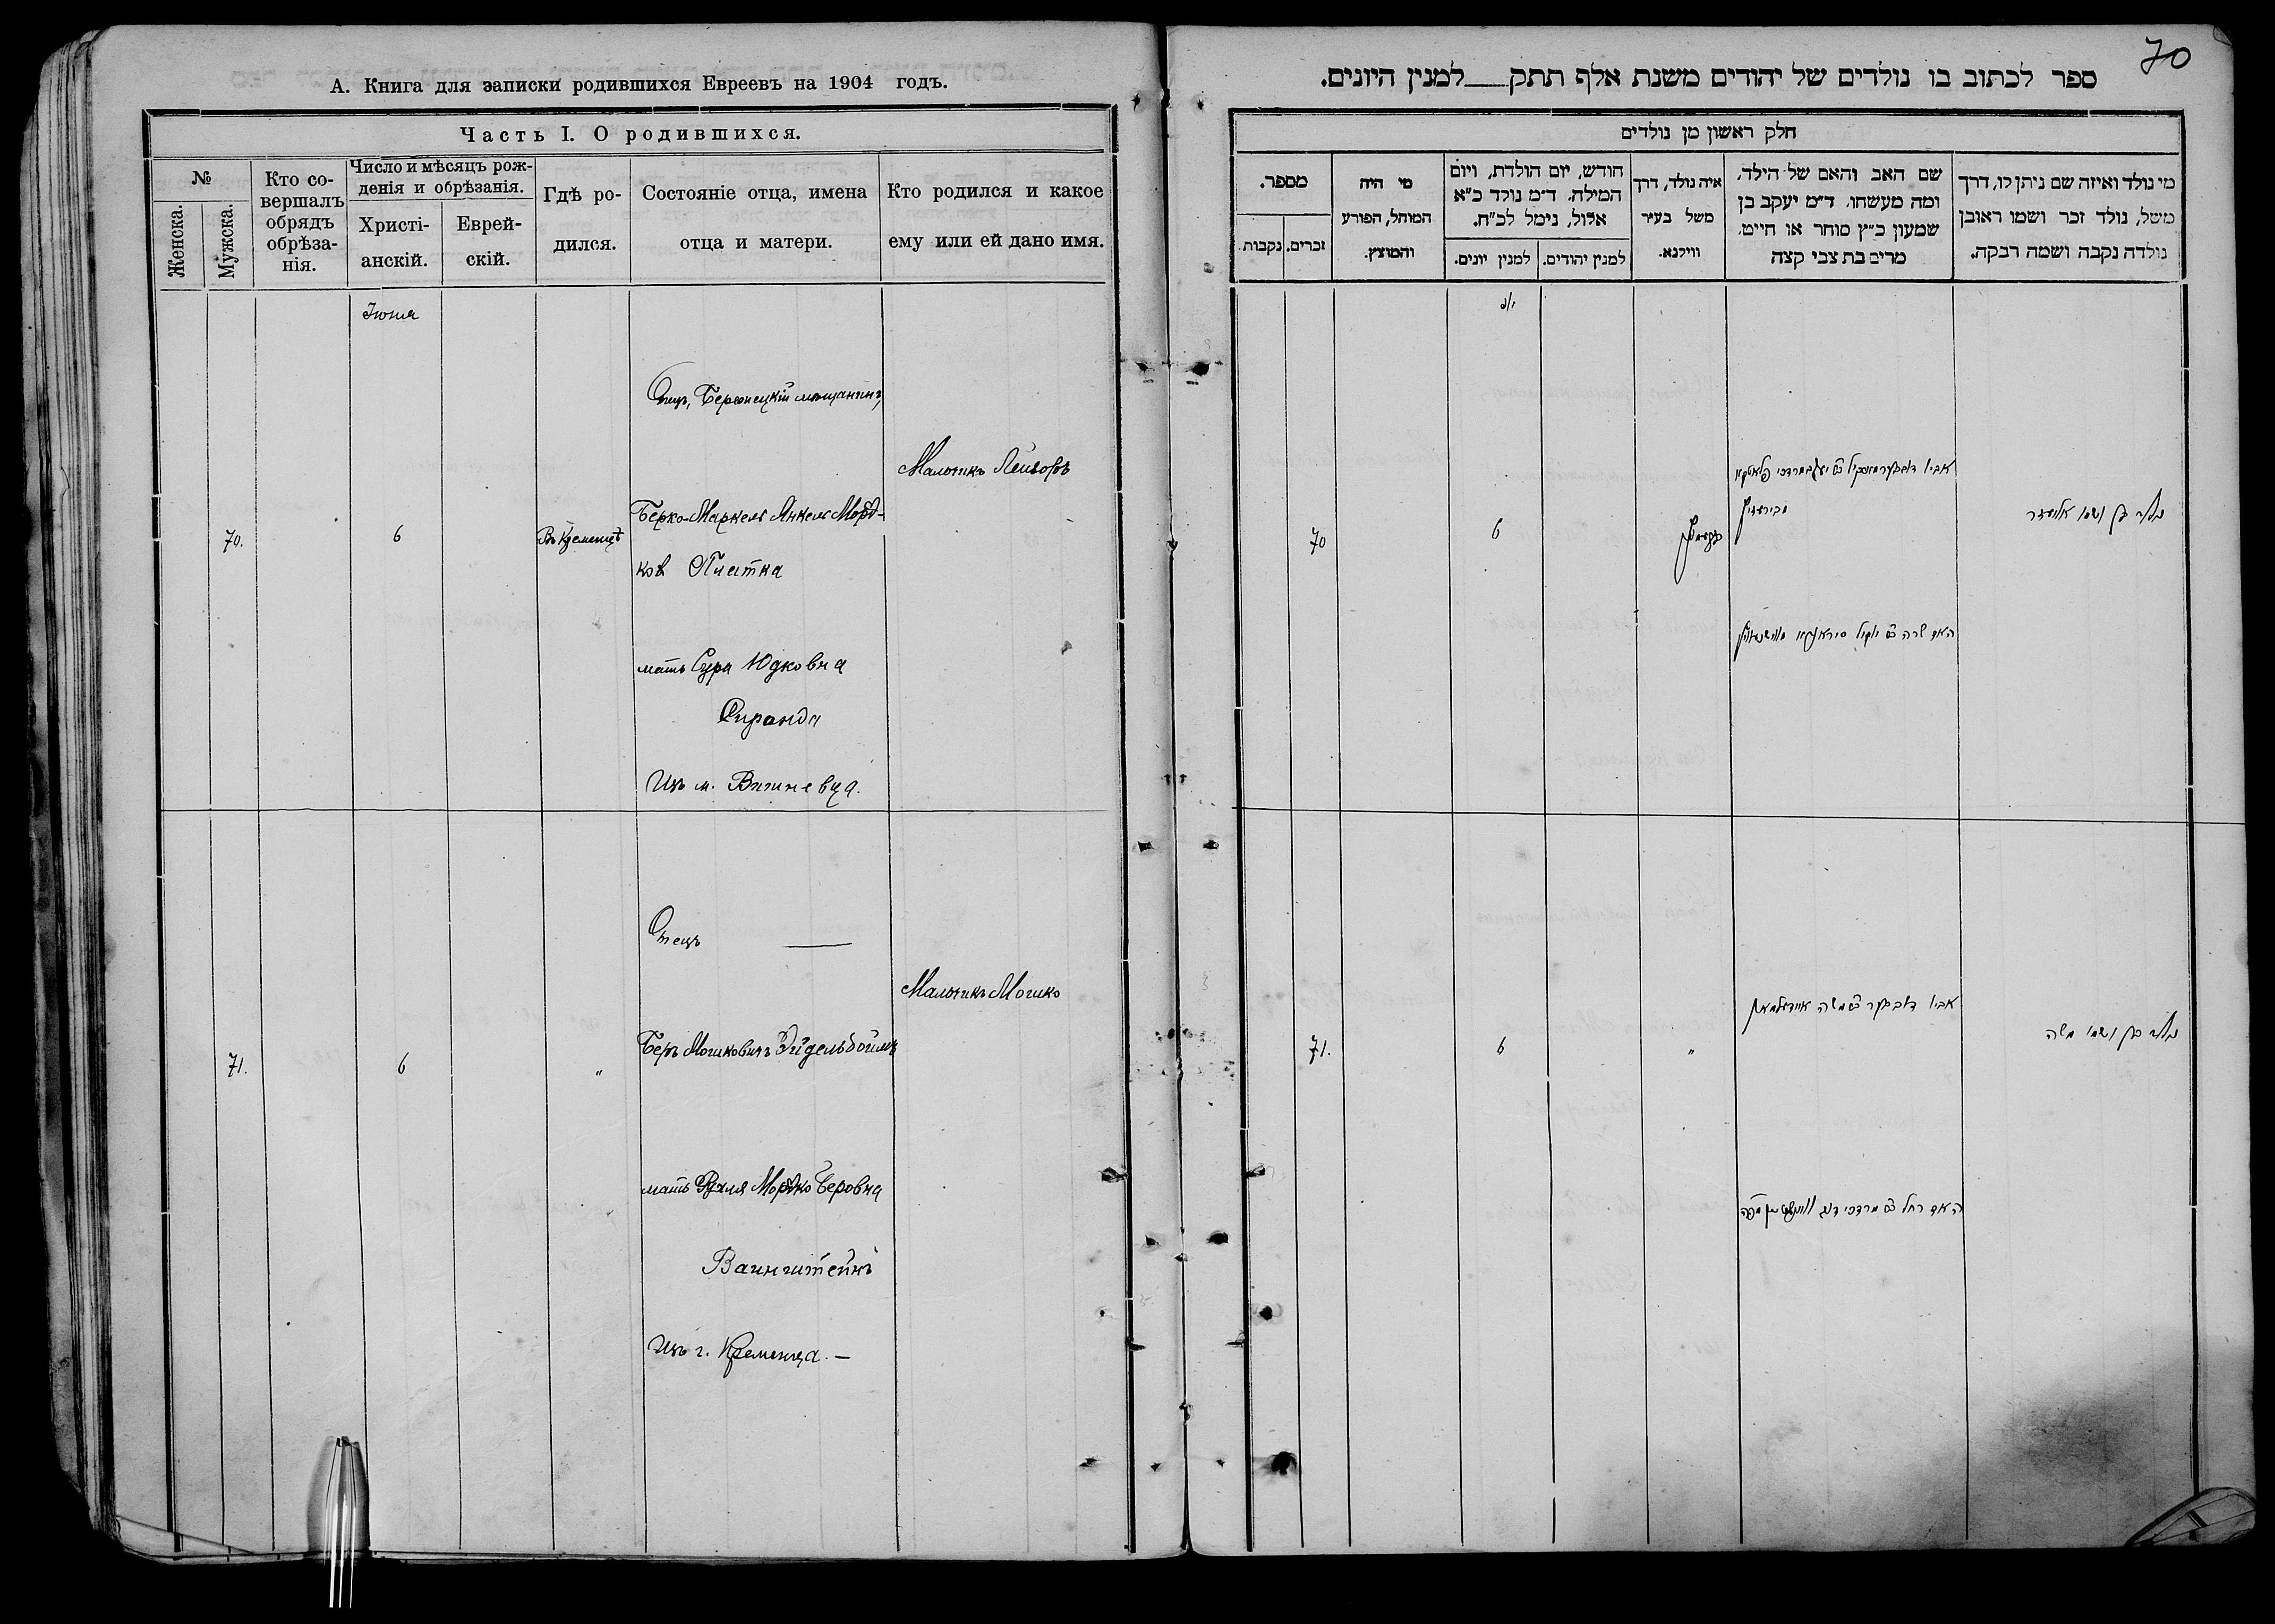 А. Книга для записки родившихся Евреевъ на 1904 годъ.
Часть I. О родившихся.
№
Женска.
Мужска.
Кто со-
вершалъ
обрядъ
обрѣза-
нія.
Число и мѣсяцъ рож-
денія и обрѣзанія.
Христі-
анскій.
Еврей-
скій.
Гдѣ ро-
дился.
Состояніе отца, имена
отца и матери.
Кто родился и какое
ему или ей дано имя.
Іюня
70.
6
Въ Кременцѣ
Отецъ, мѣщанинъ,
Берко-Маркель Янкель Морд-
ков Плитка
мать Сура Юдковна
Сиранда
Изъ м. Вишневца.
Мальчикъ Лейзоръ
71.
6
"
Отецъ —
Беръ Мошковичъ Эйдельбоймъ
мать Рухля Мордко Беровна
Ваинштейнъ
Изъ г. Кременца. —
Мальчикъ Мошко
70
ספר לכתוב בו נולדים של יהודים משנת אלף תתק__למנין היונים.
חלק ראשון מן נולדים
מספר.
זכרים.
נקבות.
מי היה
המוהל, הפורע
והמוצץ.
חודש, יום הולדת, ויום
המילה. ד״מ נולד כ״א
אלול, נימל לכ״ח.
למנין יונים.
למנין יהודים.
איה נולד, דרך
משל בעיר
ווילנא.
שם האב והאם של הילד,
ומה מעשהו, ד״מ יעקב בן
שמעון כ״ץ סוחר או חייט,
מרים בת צבי קצה
מי נולד ואיזה שם ניתן לו, דרך
משל, נולד זכר ושמו ראובן
נולדה נקבה ושמה רבקה.
70
6
נולד בן ושמו אליעזר
71.
6
"
נולד בן ושמו משה